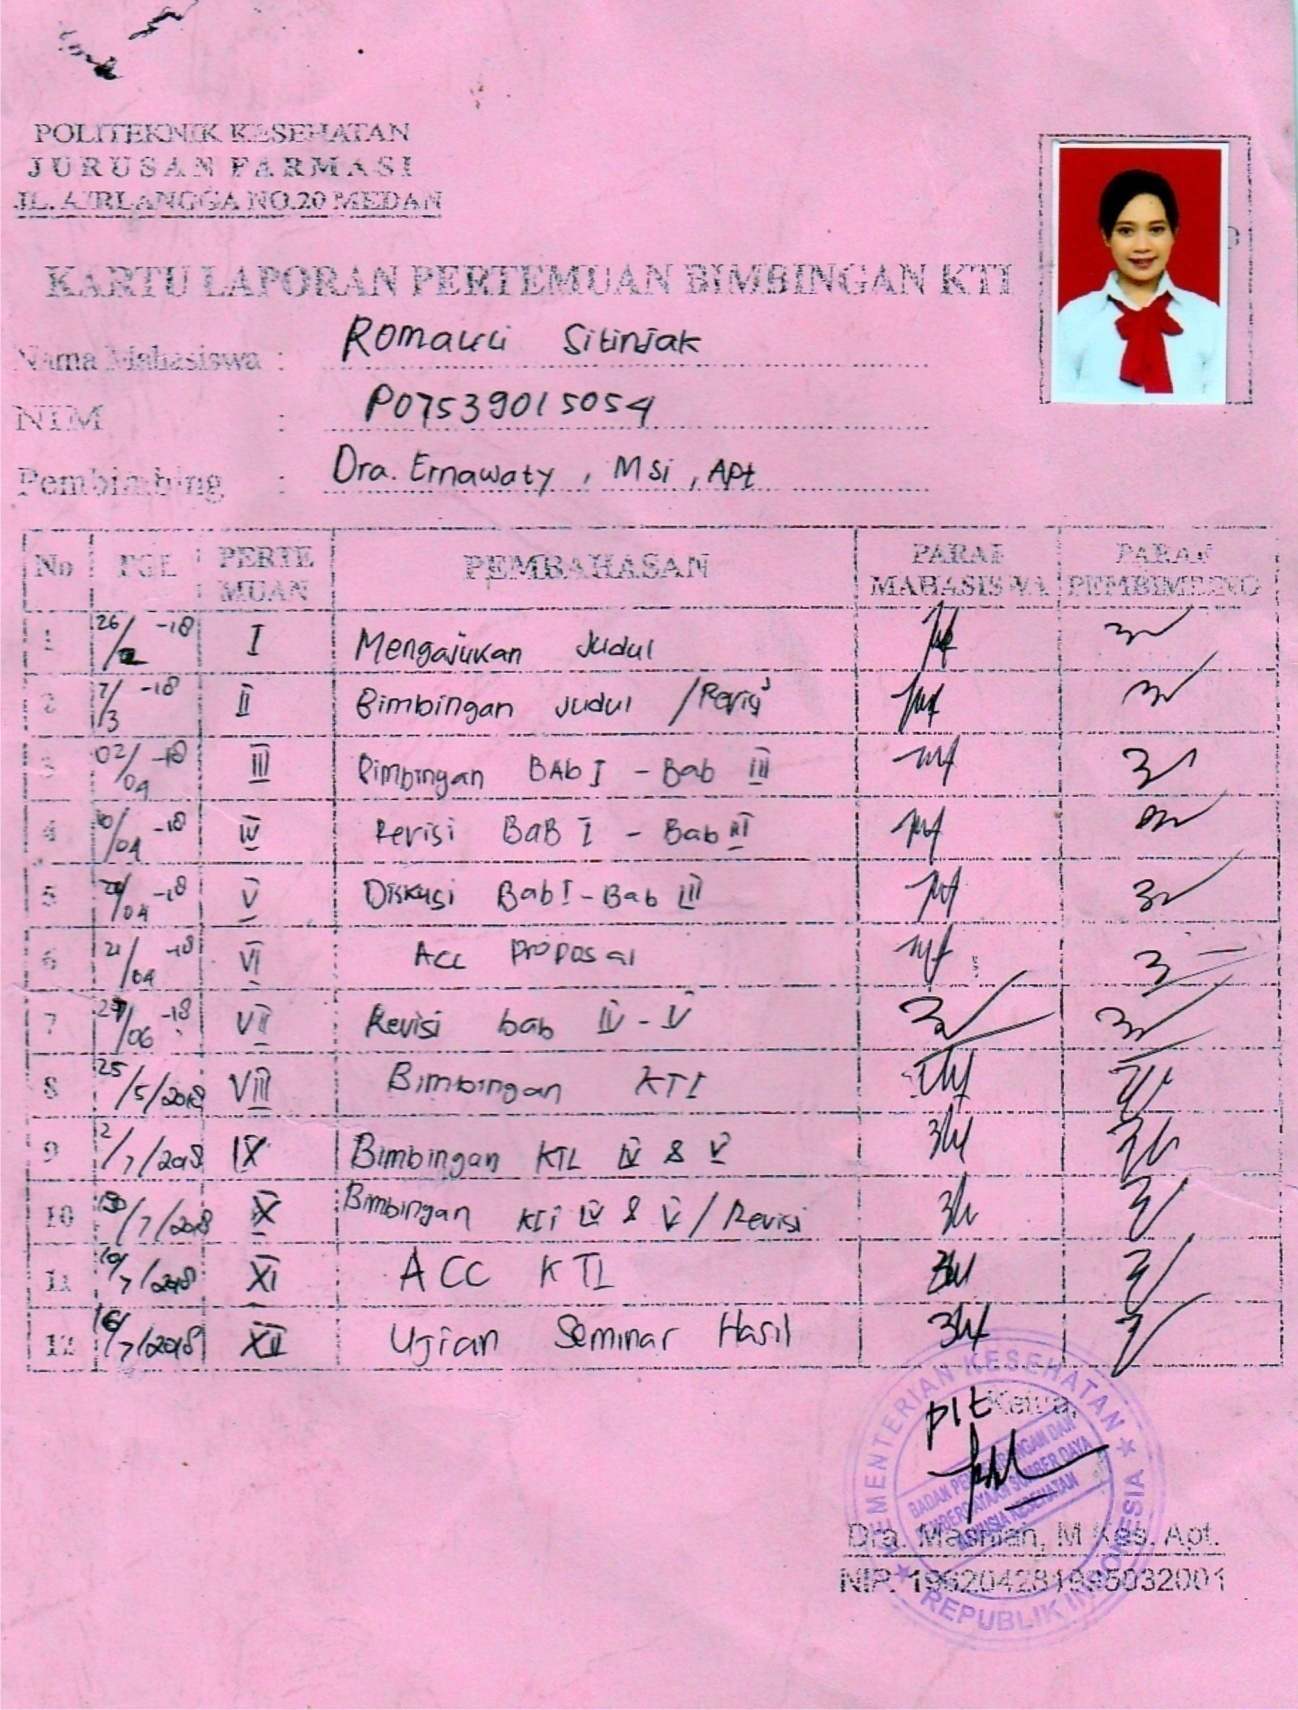 POLITEKNIK KESEHATAN
JURUSAN FARMASI
JL. AIRLANGGA NO.20 MEDAN
KARTU LAPORAN PERTEMUAN BIMBINGAN KTI
Nama Mahasiswa : Romauli Sitinjak
NIM : P07539015054
Pembimbing : Dra. Ernawaty, MSi, Apt
No TGL PERTEMUAN PEMBAHASAN PARAF MAHASISWA PARAF PEMBIMBING
1 26/2 -18 I Mengajukan Judul
2 7/3 -18 II Bimbingan Judul / Revisi
3 02/04 -18 III Bimbingan BAb I - Bab III
4 10/04 -18 IV Revisi BaB I - Bab III
5 /04 -18 V Diskusi Bab I - Bab III
6 21/04 -18 VI Acc Proposal
7 /06 -18 VII Revisi bab IV - V
8 25/5/2018 VIII Bimbingan KTI
9 2/7/2018 IX Bimbingan KTI IV & V
10 /7/2018 X Bimbingan KTI IV & V / Revisi
11 10/7/2018 XI ACC KTI
12 16/7/2018 XII Ujian Seminar Hasil
Plt Ketua,
KEMENTERIAN KESEHATAN
BADAN PENGEMBANGAN DAN
PEMBERDAYAAN SUMBER DAYA
MANUSIA KESEHATAN
REPUBLIK INDONESIA
Dra. Masniah, M Kes. Apt.
NIP. 196204281995032001